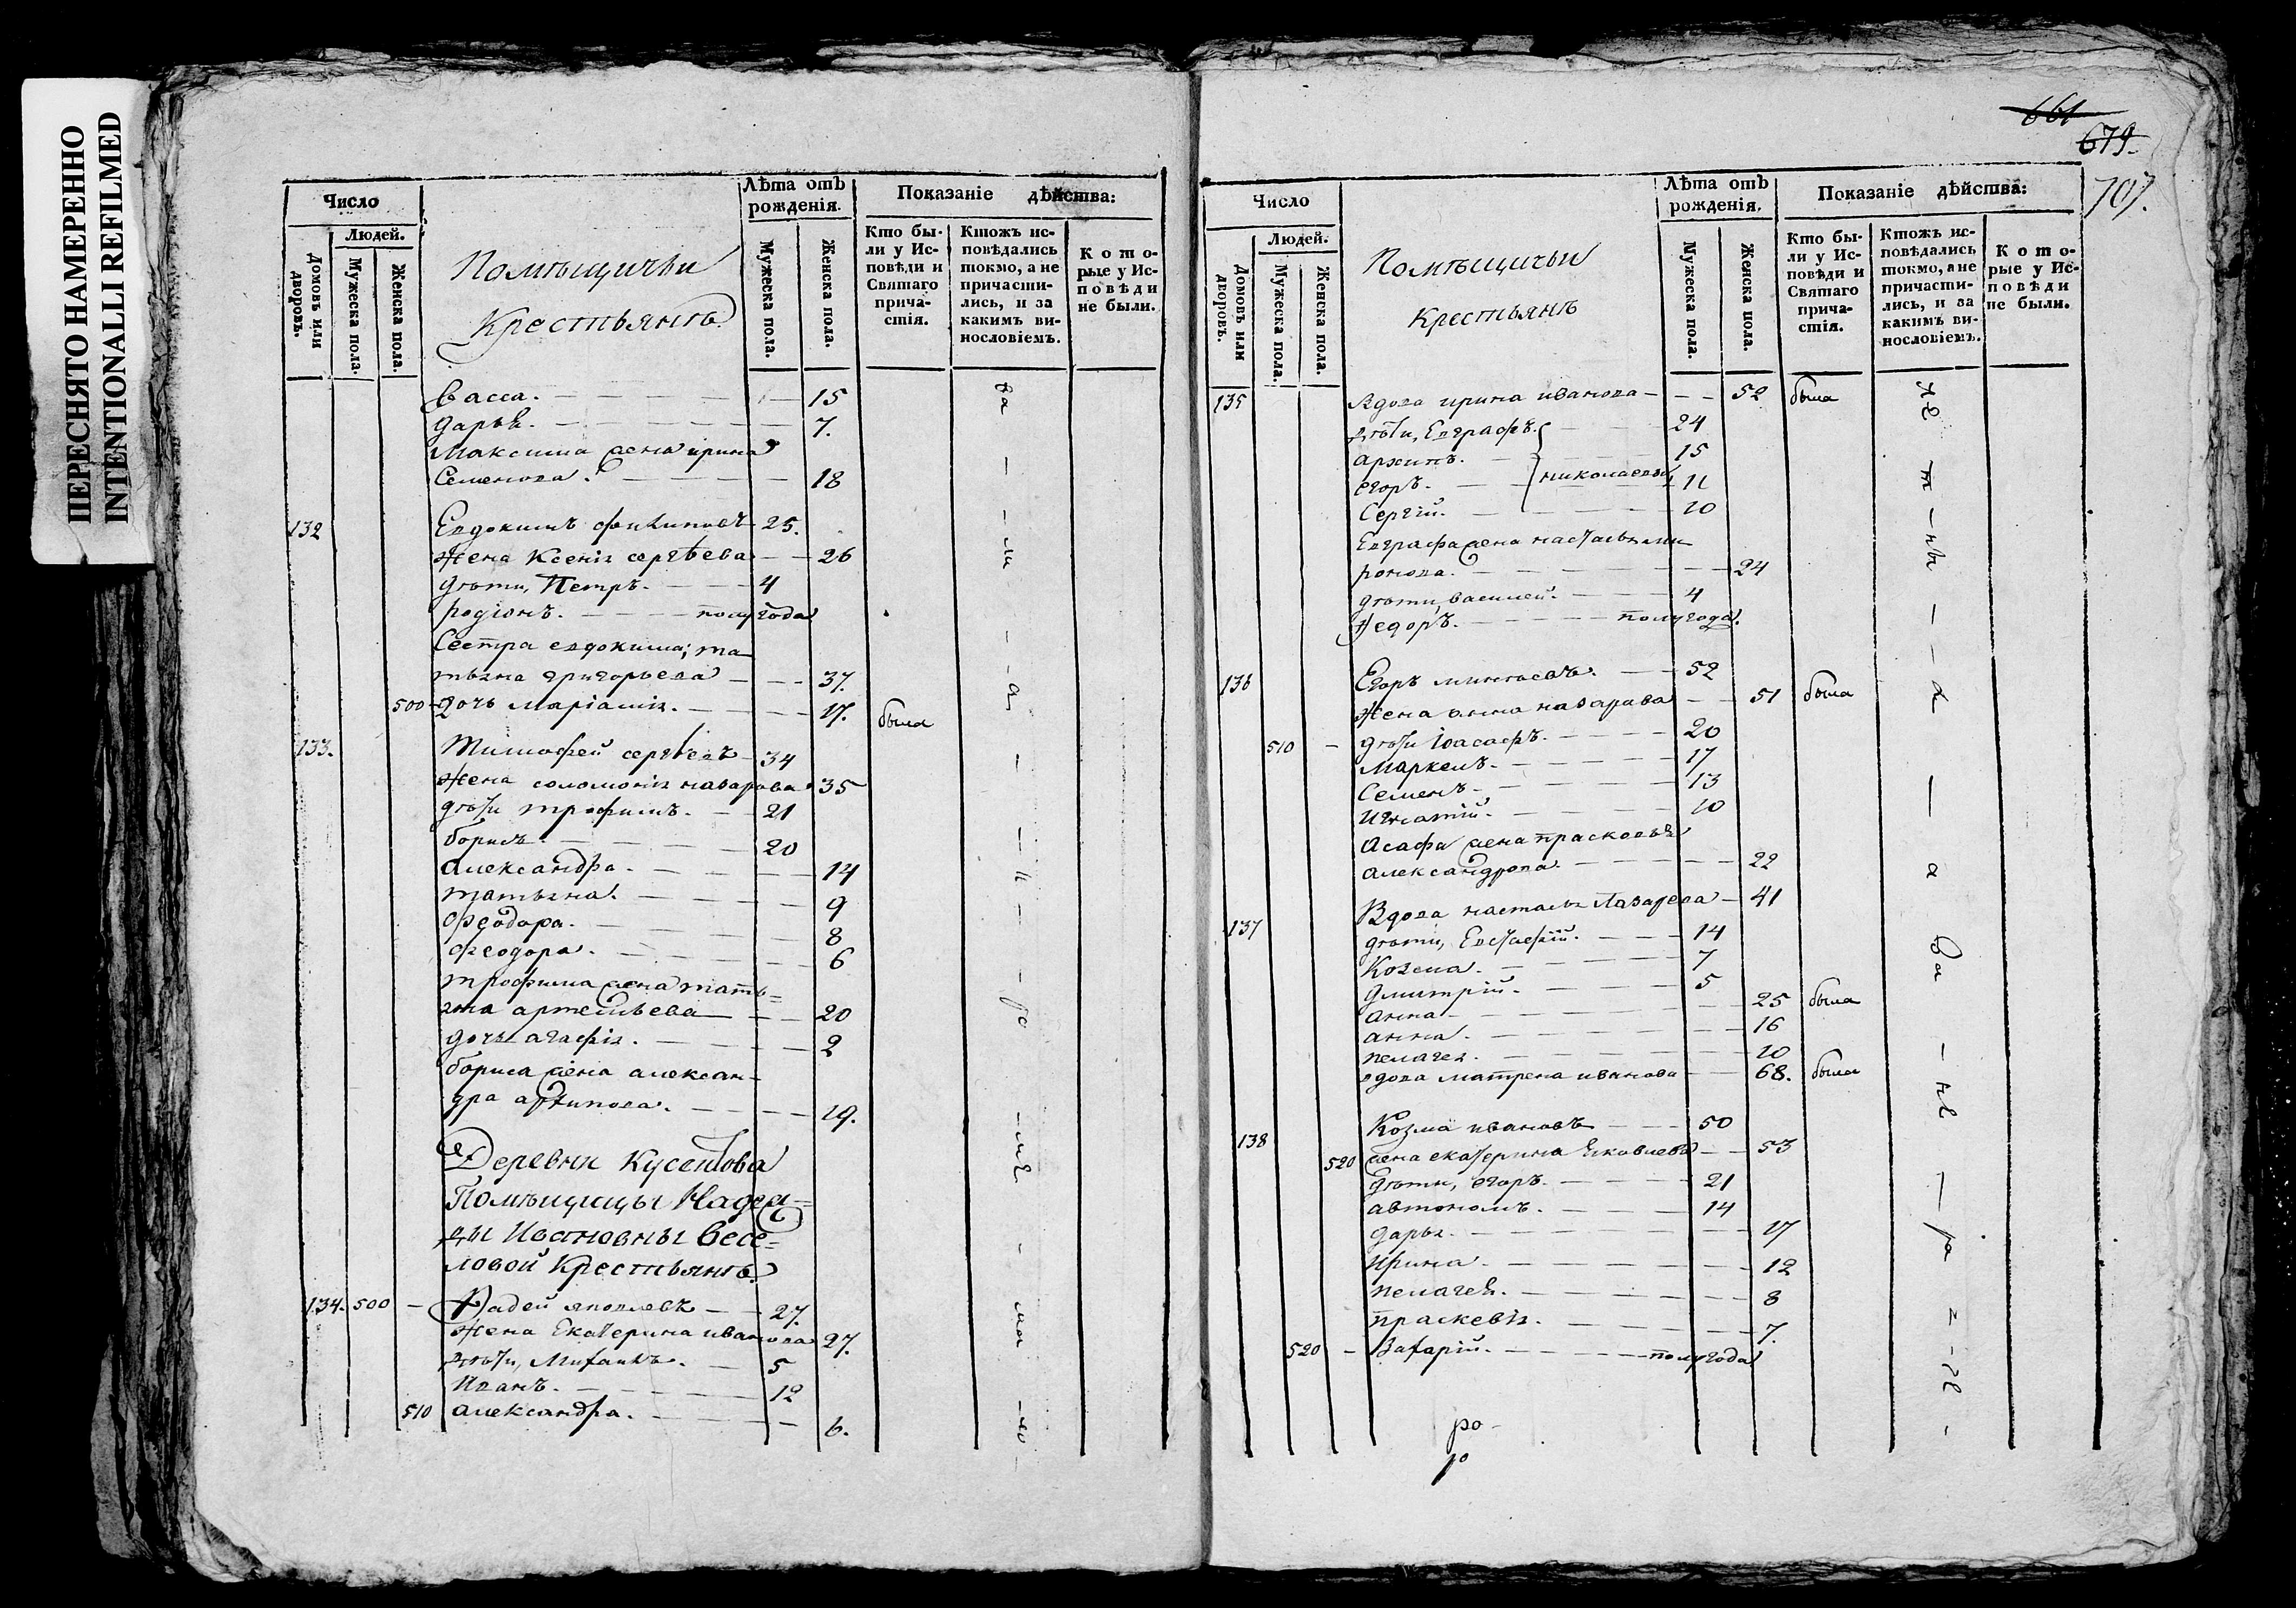 ПЕРЕСНЯТО НАМЕРЕННО
INTENTIONALLI REFILMED
Число
Людей.
Домовъ или дворовъ.
Мужеска пола.
Женска пола.
Помѣщичьи
Крестьянъ
Лѣта отъ рожденія.
Мужеска пола.
Женска пола.
Показаніе дѣйства:
Кто бы-
ли у Ис-
повѣди и
Святаго
прича-
стія.
Ктожъ ис-
повѣдались
токмо, а не
причасти-
лись, и за
какимъ ви-
нословіемъ.
К о т о-
рые у Ис-
п о в ѣ д и
не были.
Васса. 15
дарья. 7.
Максима жена ирина
Семенова. 18
132 Евдокимъ филиповъ 25.
жена Ксенія сергѣева 26
дѣти, Петръ. 4
родіонъ. полугода
Сестра евдокима; та
тьяна григорьева 37.
500 дочь Маріамія. 17. была
133. Тимофей сергѣевъ 34
жена соломонія назарова 35
дѣти трофимъ. 21
борисъ 20
александра. 14
татьяна. 9
феодора. 8
феодора. 6
трофима жена тать=
яна артемьева 20
дочь агафія. 2
бориса жена алексан-
дра архипова. 19.
Деревни Кусенкова
Помѣщицы Надеж=
ды Ивановны Весе=
ловой Крестьянъ
134. 500 Фадей яковлевъ 27.
жена Екатерина иванова 27.
дѣти, Михаилъ. 5
Иванъ. 12
510 александра. 6.
661
679
707.
Число
Людей.
Домовъ или дворовъ.
Мужеска пола.
Женска пола.
Помѣщичьи
Крестьянъ
Лѣта отъ рожденія.
Мужеска пола.
Женска пола.
Показаніе дѣйства:
Кто бы-
ли у Ис-
повѣди и
Святаго
прича-
стія.
Ктожъ ис-
повѣдались
токмо, а не
причасти-
лись, и за
какимъ ви-
нословіемъ.
К о т о-
рые у Ис-
п о в ѣ д и
не были.
135 Вдова ирина иванова 52 была
дѣти, Евграфъ. 24
архипъ. 15
егоръ. николаевы 11
Сергій. 10
Евграфа жена настасья ми
ронова. 24
дѣти, василей. 4
Федоръ. полугода.
136 Егоръ минаевъ. 52
жена анна назарова 51 была
510 дѣти Іоасафъ. 20
Маркелъ. 17
Семенъ. 13
Игнатій. 10
Асафа жена прасковья
александрова. 22
137 Вдова настасья Лазарева 41
дѣти, Евстафій. 14
Козма. 7
дмитрій. 5
анна 25 была
анна. 16
пелагея. 10
вдова матрена иванова 68. была
138 Козма ивановъ 50
520 жена екатерина Яковлева 53
дѣти, егоръ. 21
автономъ. 14
дарья. 17
Ирина. 12
пелагея. 8
праскевія. 7.
520 Захарій. полугода
ро-
ро